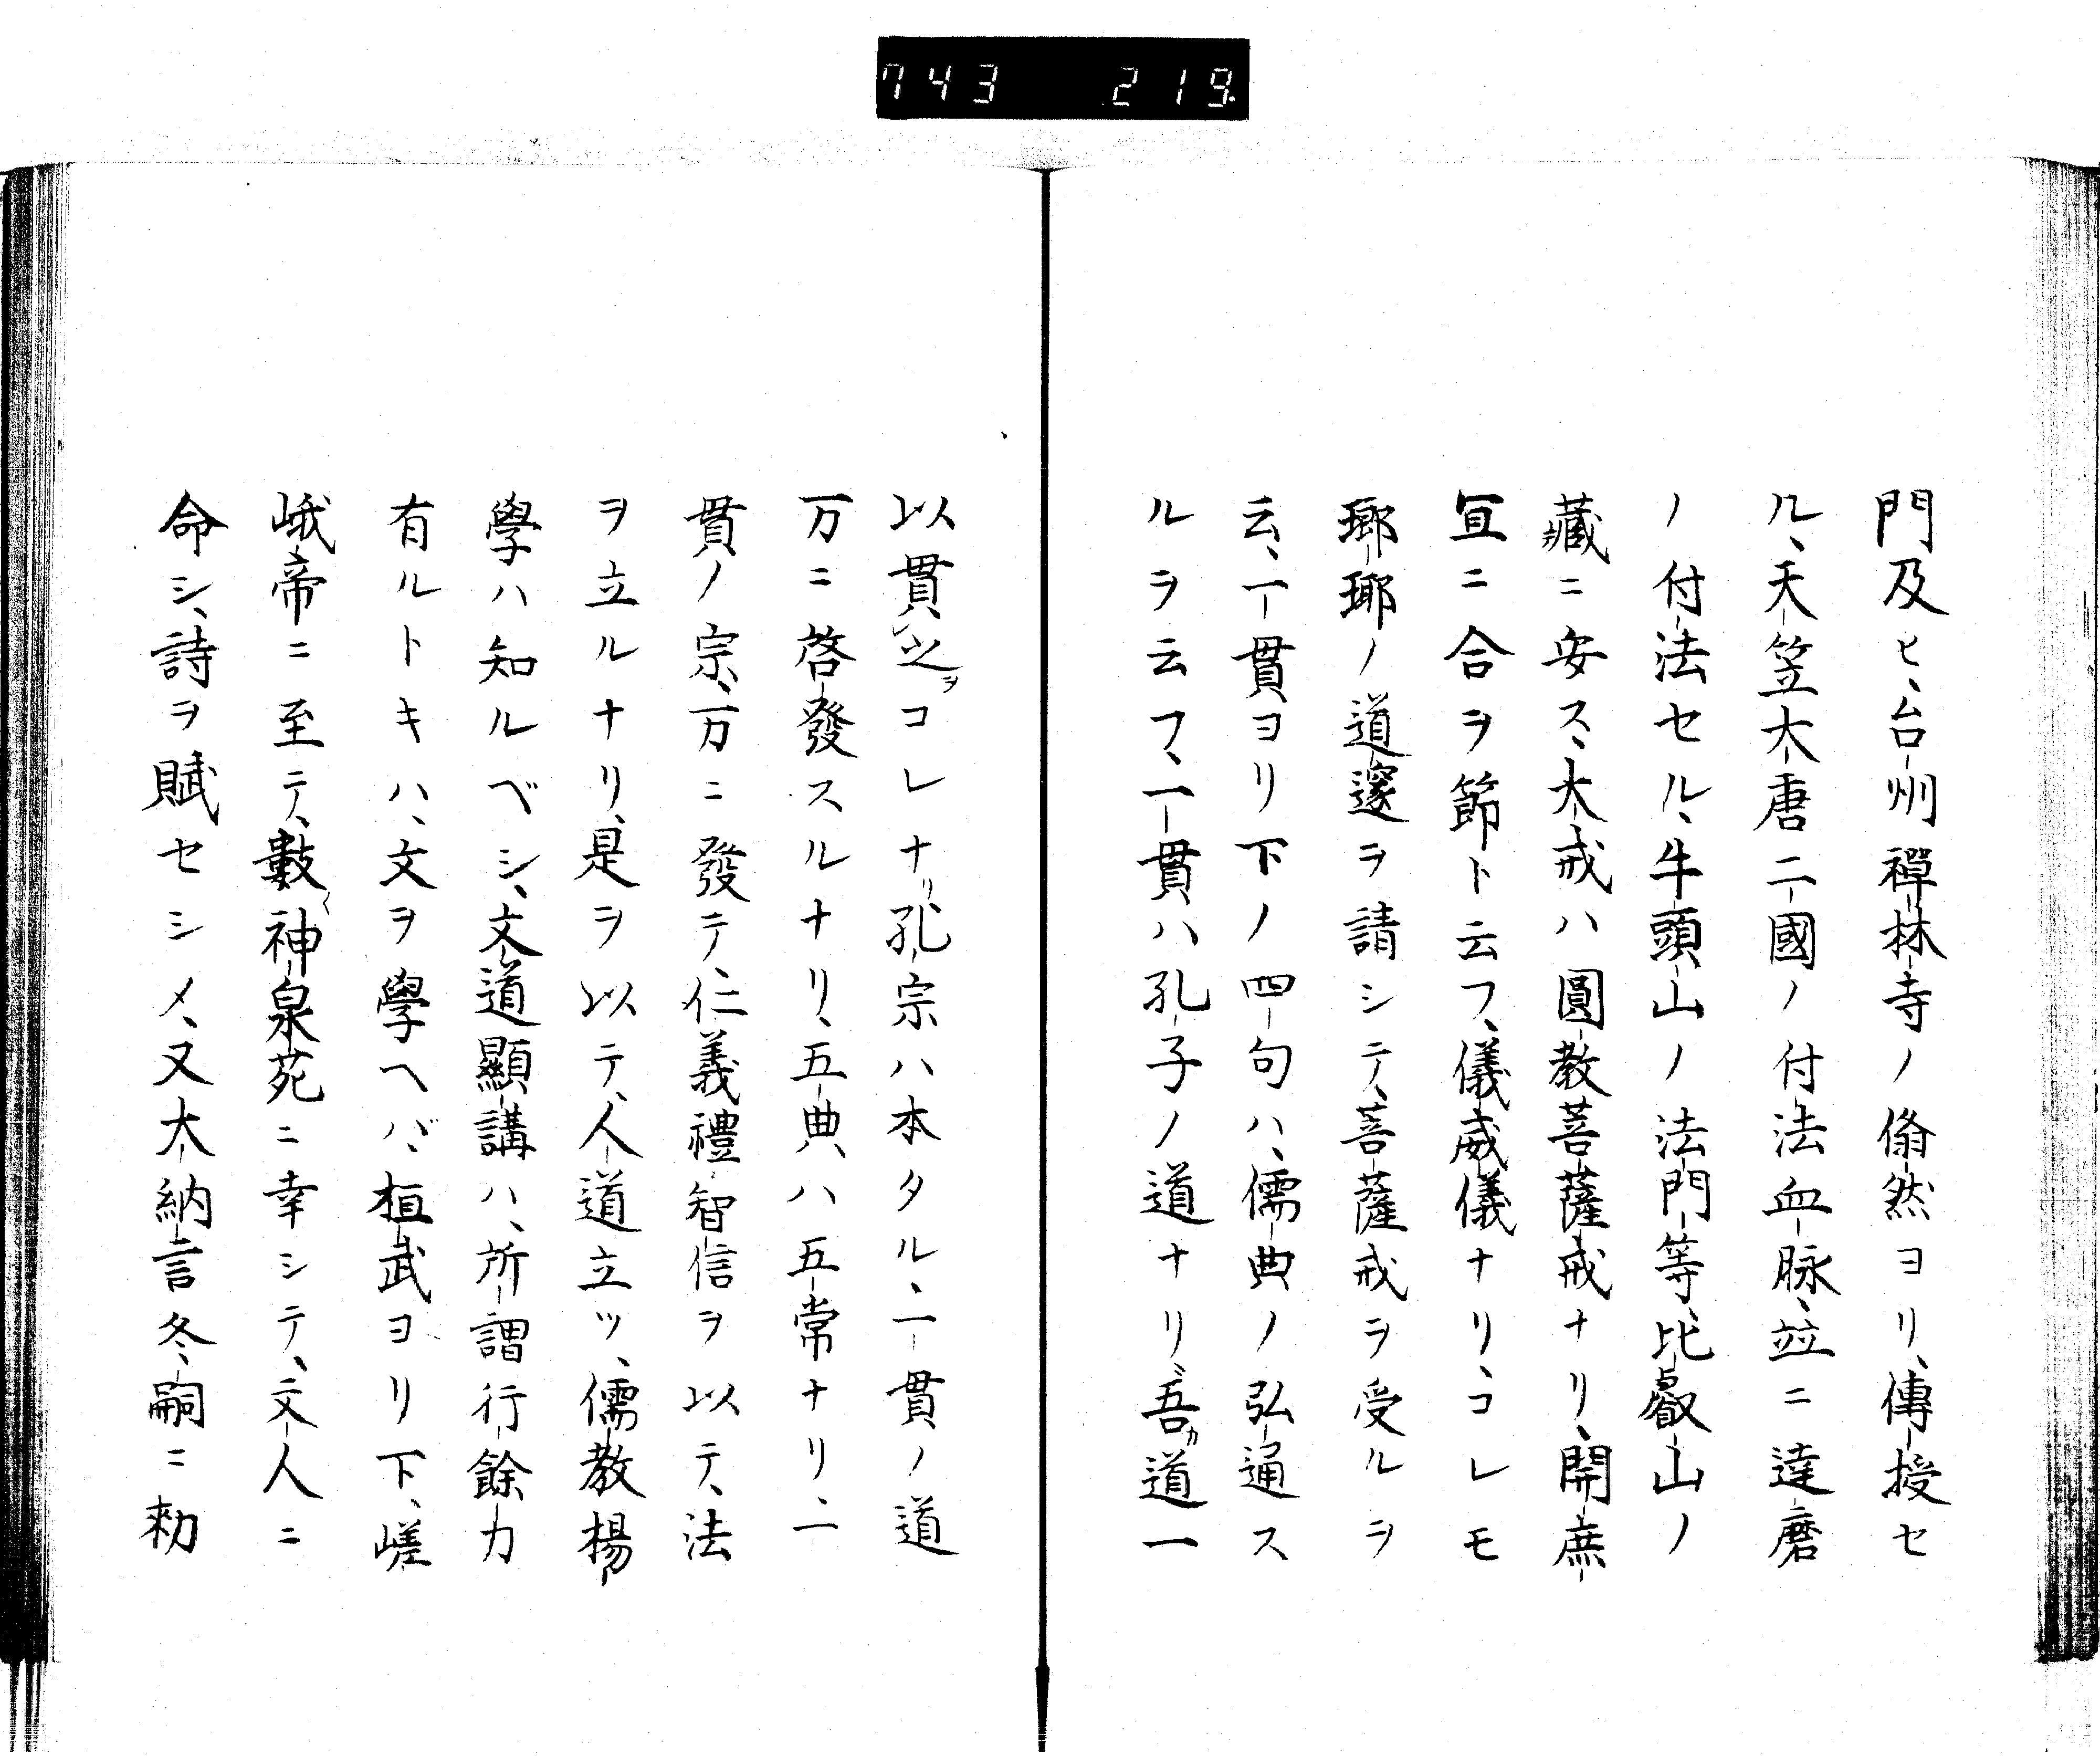 743 219
門及ヒ、台州禪林寺ノ翛然ヨリ、傳授セ
ル、天笠大唐二國ノ付法血脉、竝ニ達磨
ノ付法セル、牛頭山ノ法門等、比叡山ノ
藏ニ安ス、大戒ハ圓教菩薩戒ナリ、開庶
宜ニ合ヲ節ト云フ、儀威儀ナリ、コレモ
瑯瑘ノ道邃ヲ請シテ、菩薩戒ヲ受ルヲ
云、一貫ヨリ下ノ四句ハ、儒典ノ弘通ス
ルヲ云フ、一貫ハ孔子ノ道ナリ、吾カ道一
以貫之ヲコレナリ孔宗ハ本タル、一貫ノ道
万ニ啓發スルナリ、五典ハ五常ナリ、一
貫ノ宗、万ニ發テ、仁義禮智信ヲ以テ、法
ヲ立ルナリ、是ヲ以テ、人道立ツ、儒教楊
學ハ知ルベシ、文道顯講ハ、所謂行餘力
有ルトキハ、文ヲ學ヘバ、桓武ヨリ下、嵯
峨帝ニ至テ、數〱神泉苑ニ幸シテ、文人ニ
命シ、詩ヲ賦セシメ、又大納言冬嗣ニ勅